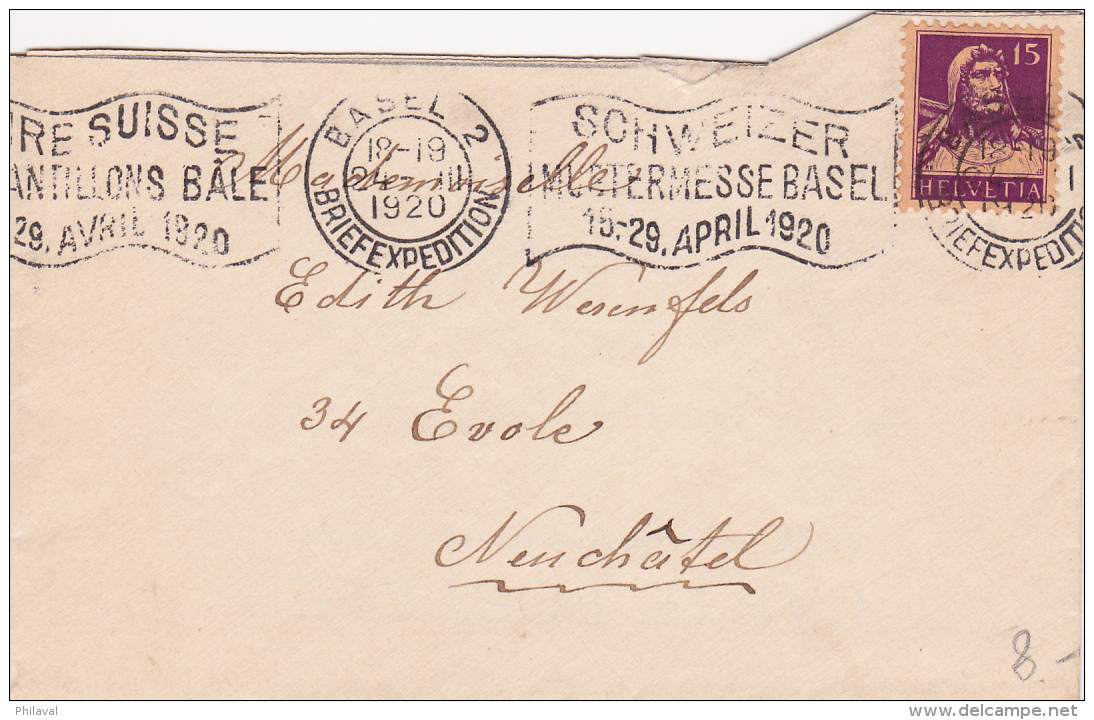 RE SUISSE
ANTILLONS BÂLE
29. AVRIL 1920
BASEL 2
18-19
III
1920
BRIEFEXPEDITION
SCHWEIZER
MUSTERMESSE BASEL
15.-29. APRIL 1920
15
HELVETIA
BRIEFEXPEDITIO
Mademoiselle
Edith Werenfels
34 Evole
Neuchâtel
8 -
Philaval
www.delcampe.net